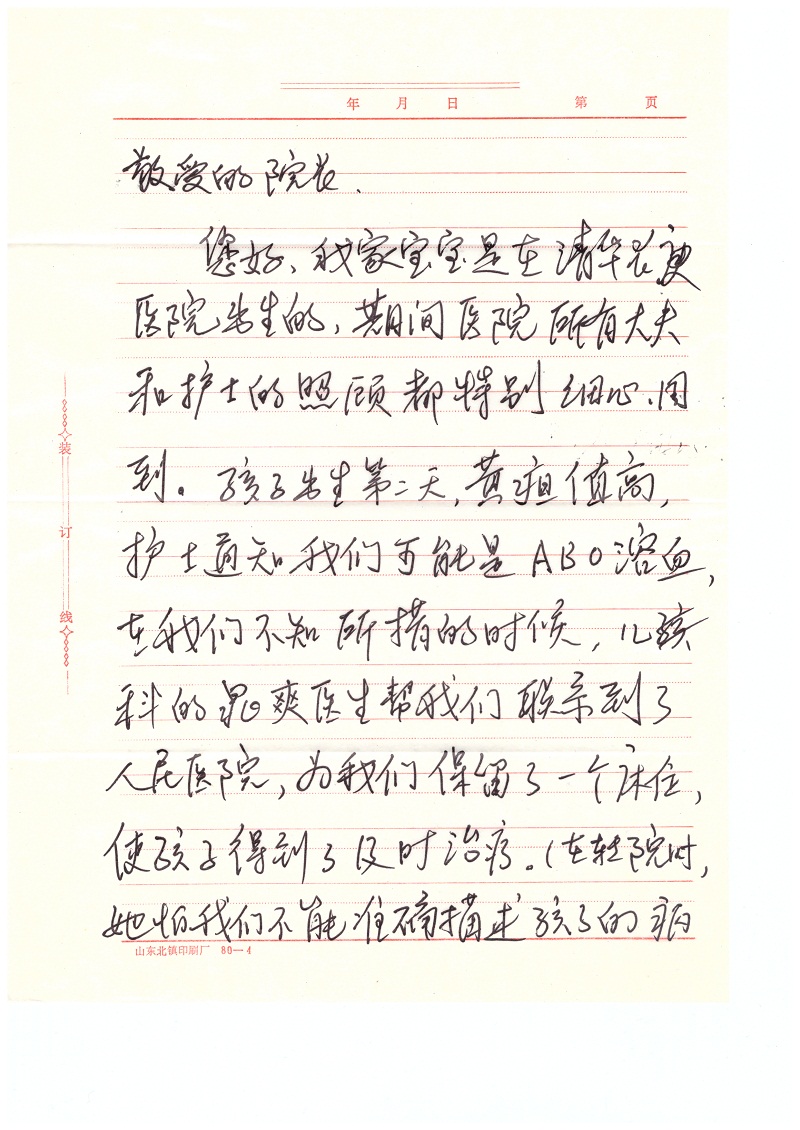 年 月 日 第 页
敬爱的院长.
您好、我家宝宝是在清华长庚
医院出生的,期间医院所有大夫
和护士的照顾都特别细心.周
到。孩子出生第二天,黄疸值高,
护士通知我们可能是ABO溶血,
在我们不知所措的时候,儿孩
科的晁爽医生帮我们联系到了
人民医院,为我们保留了一个床位,
使孩子得到了及时治疗。(在转院时,
她怕我们不能准确描述孩子的病
装
订
线
山东北镇印刷厂 80—4